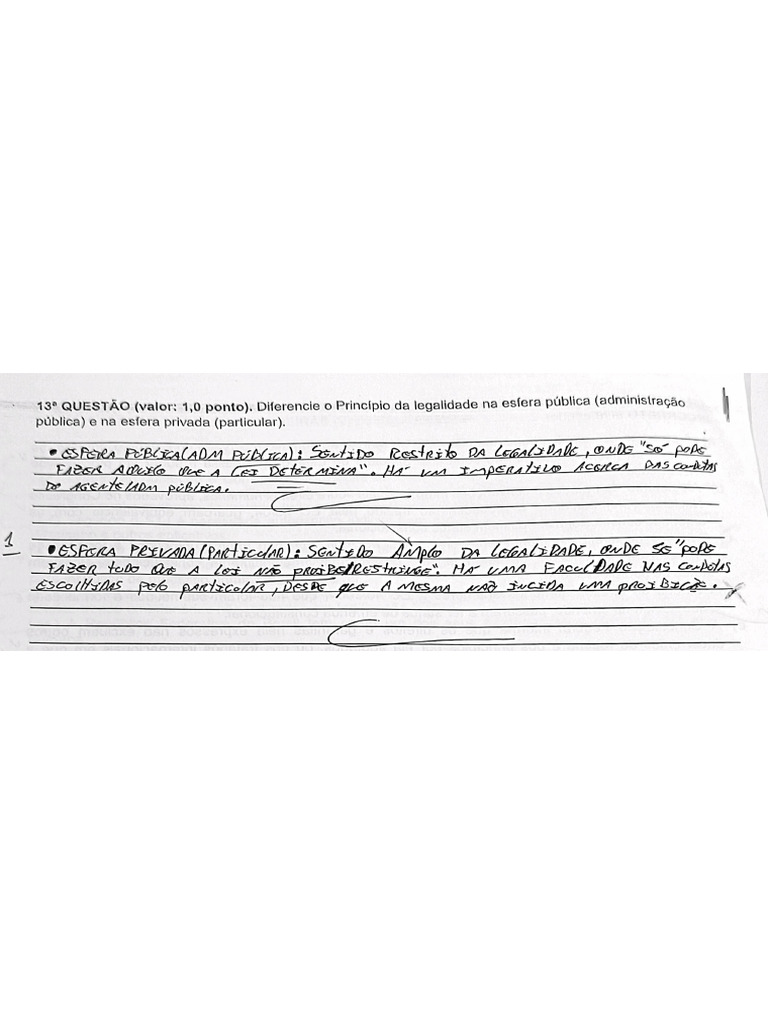 13ª QUESTÃO (valor: 1,0 ponto). Diferencie o Princípio da legalidade na esfera pública (administração
pública) e na esfera privada (particular).
• ESFERA PÚBLICA (ADM PÚBLICA): SENTIDO RESTRITO DA LEGALIDADE, ONDE "SÓ PODE
FAZER AQUILO QUE A LEI DETERMINA". HÁ UM IMPERATIVO ACERCA DAS CONDUTAS
DO AGENTE/ADM PÚBLICA.
1
• ESFERA PRIVADA (PARTICULAR): SENTIDO AMPLO DA LEGALIDADE, ONDE SE "PODE
FAZER TUDO QUE A LEI NÃO PROIBE/RESTRINGE". HÁ UMA FACULDADE NAS CONDUTAS
ESCOLHIDAS PELO PARTICULAR, DESDE QUE A MESMA NÃO INCIDA UMA PROIBIÇÃO.